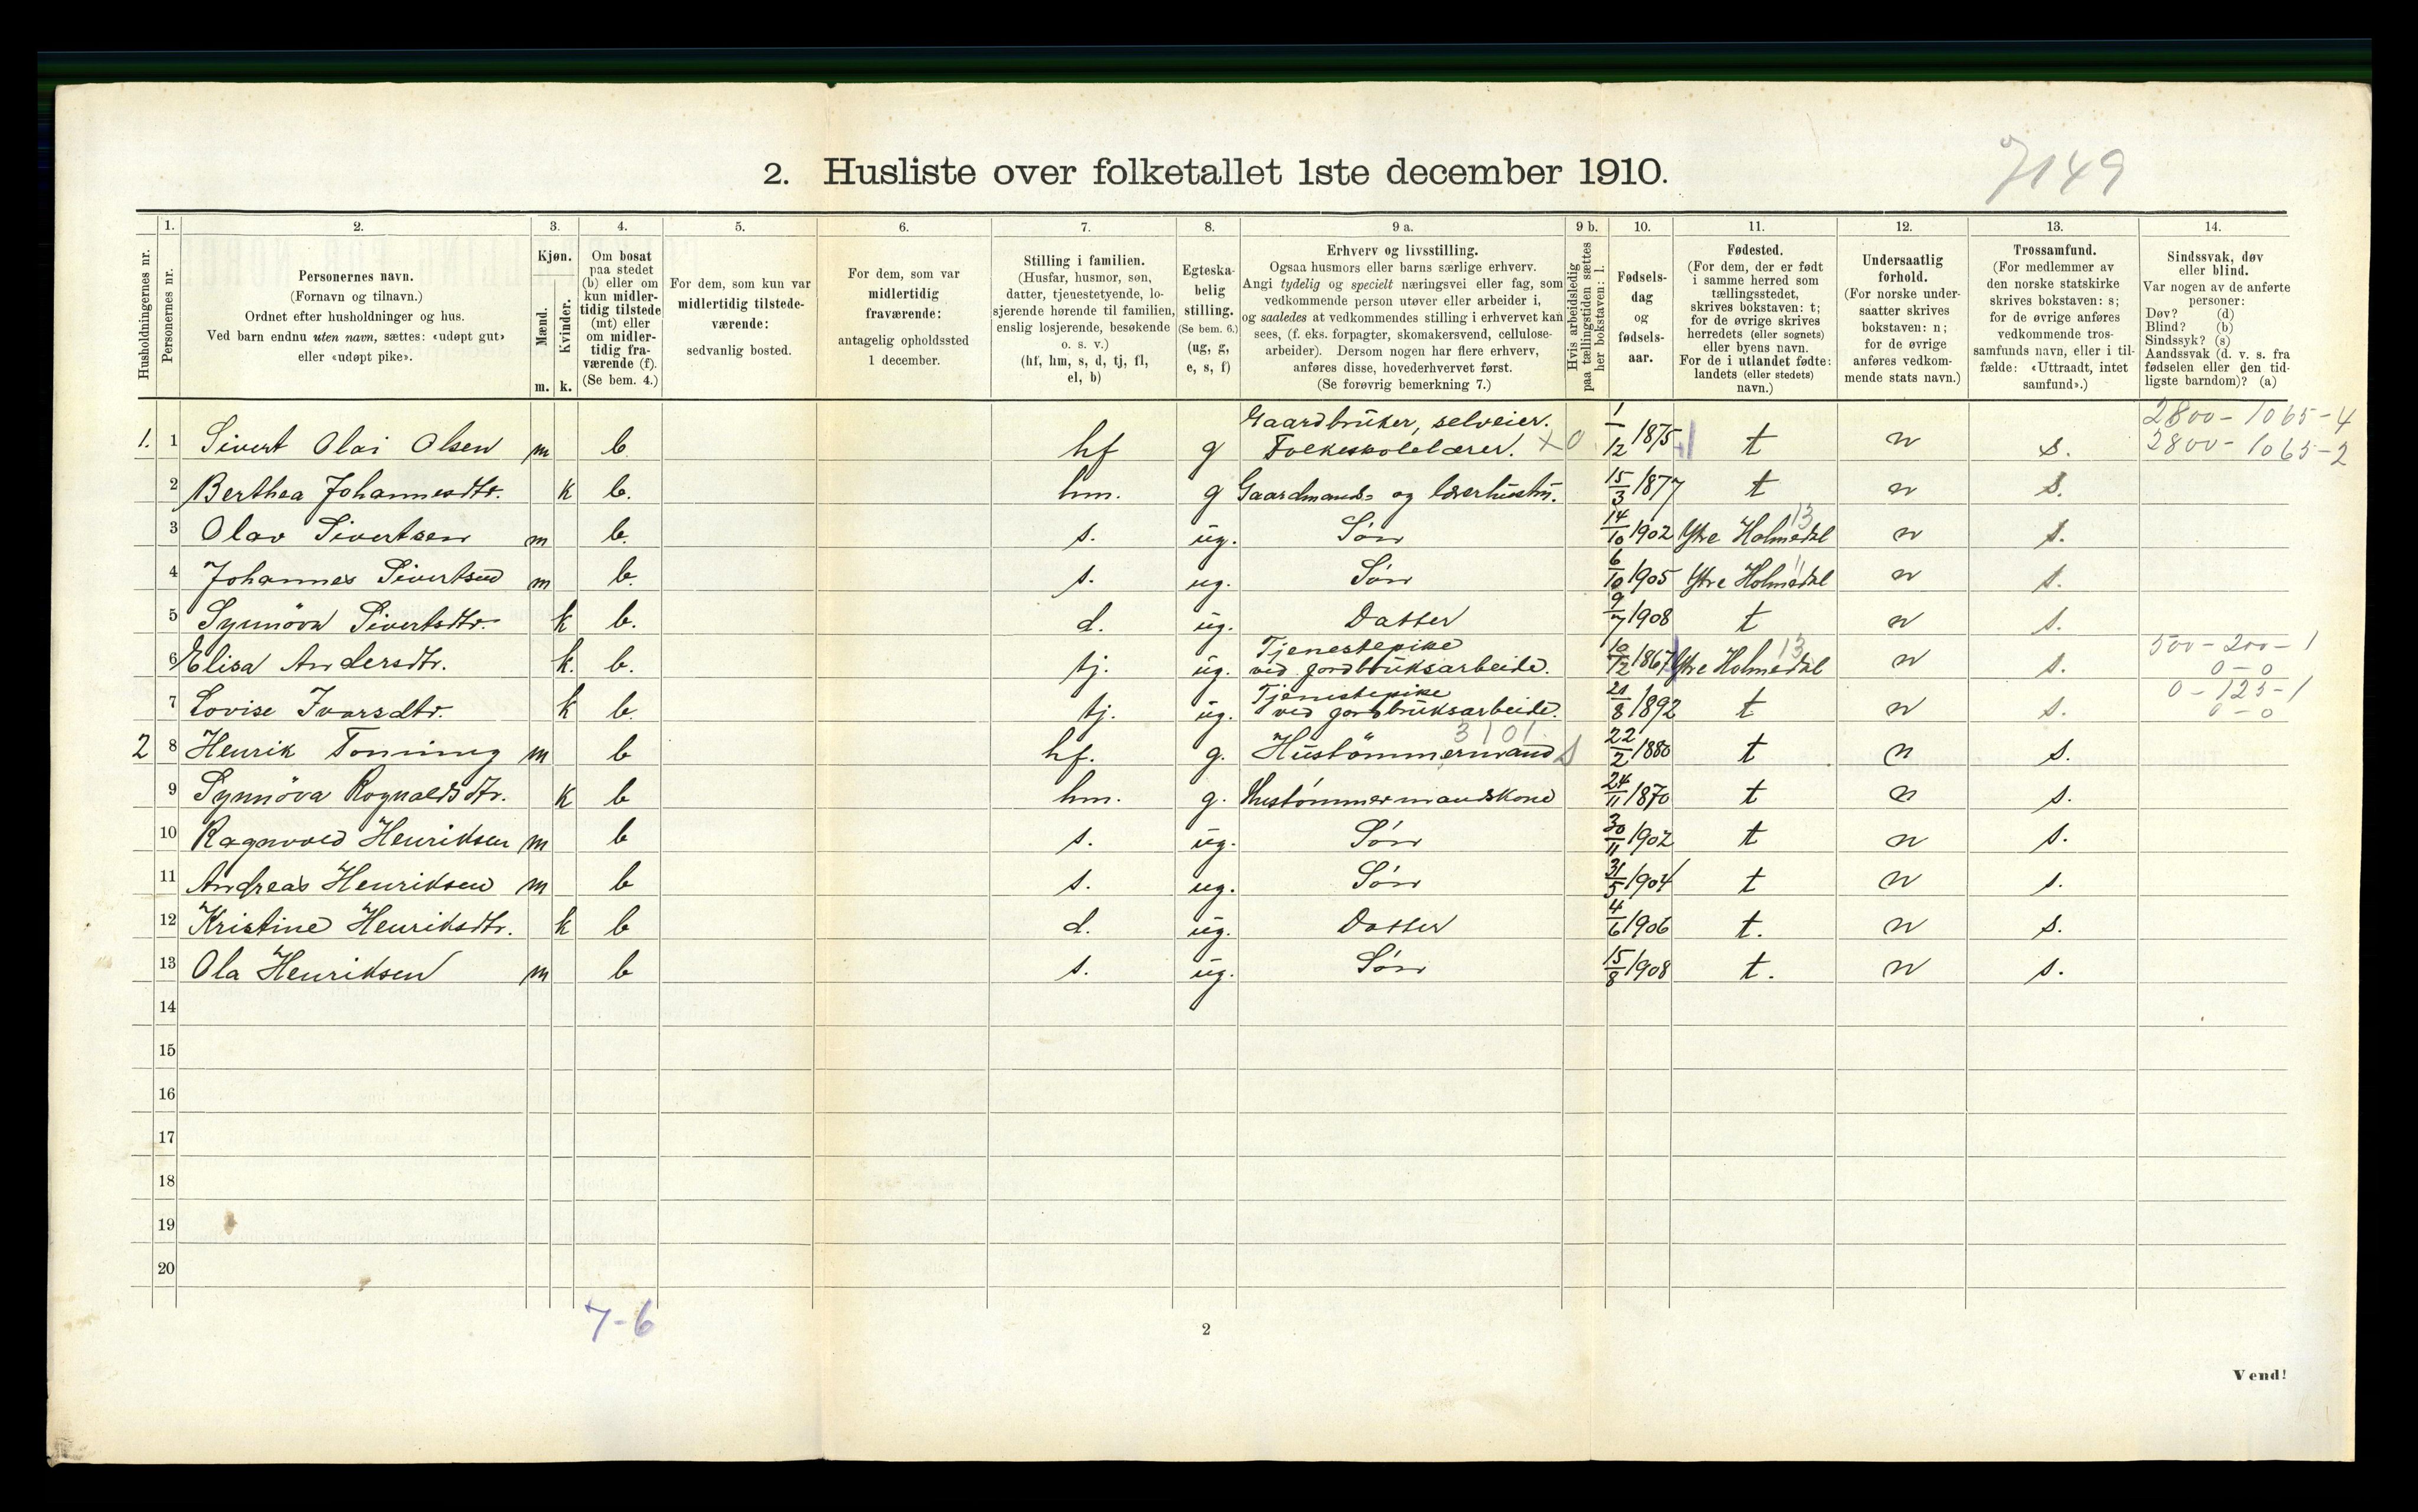 7149
2. Husliste over folketallet 1ste december 1910.
Husholdningernes nr.
1.
Personernes nr.
2.
Personernes navn.
(Fornavn og tilnavn.)
Ordnet efter husholdninger og hus.
Ved barn endnu uten navn, sættes: «udøpt gut»
eller «udøpt pike».
3.
Kjøn.
Mænd.
Kvinder.
m. k.
4.
Om bosat
paa stedet
(b) eller om
kun midler-
tidig tilstede
(mt) eller
om midler-
tidig fra-
værende (f).
(Se bem. 4.)
5.
For dem, som kun var
midlertidig tilstede-
værende:
sedvanlig bosted.
6.
For dem, som var
midlertidig
fraværende:
antagelig opholdssted
1 december.
7.
Stilling i familien.
(Husfar, husmor, søn,
datter, tjenestetyende, lo-
sjerende hørende til familien,
enslig losjerende, besøkende
o. s. v.)
(hf, hm, s, d, tj, fl,
el, b)
8.
Egteska-
belig
stilling.
(Se bem. 6.)
(ug, g,
e, s, f)
9 a.
Erhverv og livsstilling.
Ogsaa husmors eller barns særlige erhverv.
Angi tydelig og specielt næringsvei eller fag, som
vedkommende person utøver eller arbeider i,
og saaledes at vedkommendes stilling i erhvervet kan
sees, (f. eks. forpagter, skomakersvend, cellulose-
arbeider). Dersom nogen har flere erhverv,
anføres disse, hovederhvervet først.
(Se forøvrig bemerkning 7.)
9 b.
Hvis arbeidsledig
paa tællingstiden sættes
her bokstaven: l.
10.
Fødsels-
dag
og
fødsels-
aar.
11.
Fødested.
(For dem, der er født
i samme herred som
tællingsstedet,
skrives bokstaven: t;
for de øvrige skrives
herredets (eller sognets)
eller byens navn.
For de i utlandet fødte:
landets (eller stedets)
navn.)
12.
Undersaatlig
forhold.
(For norske under-
saatter skrives
bokstaven: n;
for de øvrige
anføres vedkom-
mende stats navn.)
13.
Trossamfund.
(For medlemmer av
den norske statskirke
skrives bokstaven: s;
for de øvrige anføres
vedkommende tros-
samfunds navn, eller i til-
fælde: «Uttraadt, intet
samfund».)
14.
Sindssvak, døv
eller blind.
Var nogen av de anførte
personer:
Døv? (d)
Blind? (b)
Sindssyk? (s)
Aandssvak (d. v. s. fra
fødselen eller den tid-
ligste barndom)? (a)
Gaardbruker, selveier. 2800-1065-4
1. 1 Sivert Olai Olsen m b hf g Folkeskolelærer. x 0 1/12 1875 t n s. 2800-1065-2
2 Berthea Johannesdtr. k b. hm. g Gaardmands- og lærerhustru. 15/3 1877 t n s.
3 Olav Sivertsen m b. s. ug. Søn 14/10 1902 Ytre Holmedal 13 n s.
4 Johannes Sivertsen m b. s. ug. Søn 6/10 1905 Ytre Holmedal n s.
5 Synnöva Sivertsdtr. k b. d. ug. Datter 9/7 1908 t n s.
Tjenestepike 13 500-200-1
6 Elisa Andersdtr. k. b. tj. ug. ved jordbruksarbeide. 10/12 1867 Ytre Holmedal n s. 0-0
Tjenestepike 0-125-1
7 Lovise Ivarsdtr. k b. tj. ug. ved jordbruksarbeide. 21/8 1892 t n s. 0-0
3101
2 8 Henrik Tonning m b hf. g. Hustömmermand s 22/2 1880 t n s.
9 Synnöva Rognaldsdtr. k b hm. g. Hustömmermandskone 24/11 1870 t n s.
10 Ragnvald Henriksen m b s. ug. Søn 30/11 1902 t n s.
11 Andreas Henriksen m b s. ug. Søn 31/5 1904 t n s.
12 Kristine Henriksdtr. k b d. ug. Datter 4/6 1906 t. n s.
13 Ola Henriksen m b s. ug. Søn 15/8 1908 t. n s.
14
15
16
17
18
19
20
7-6
2
Vend!